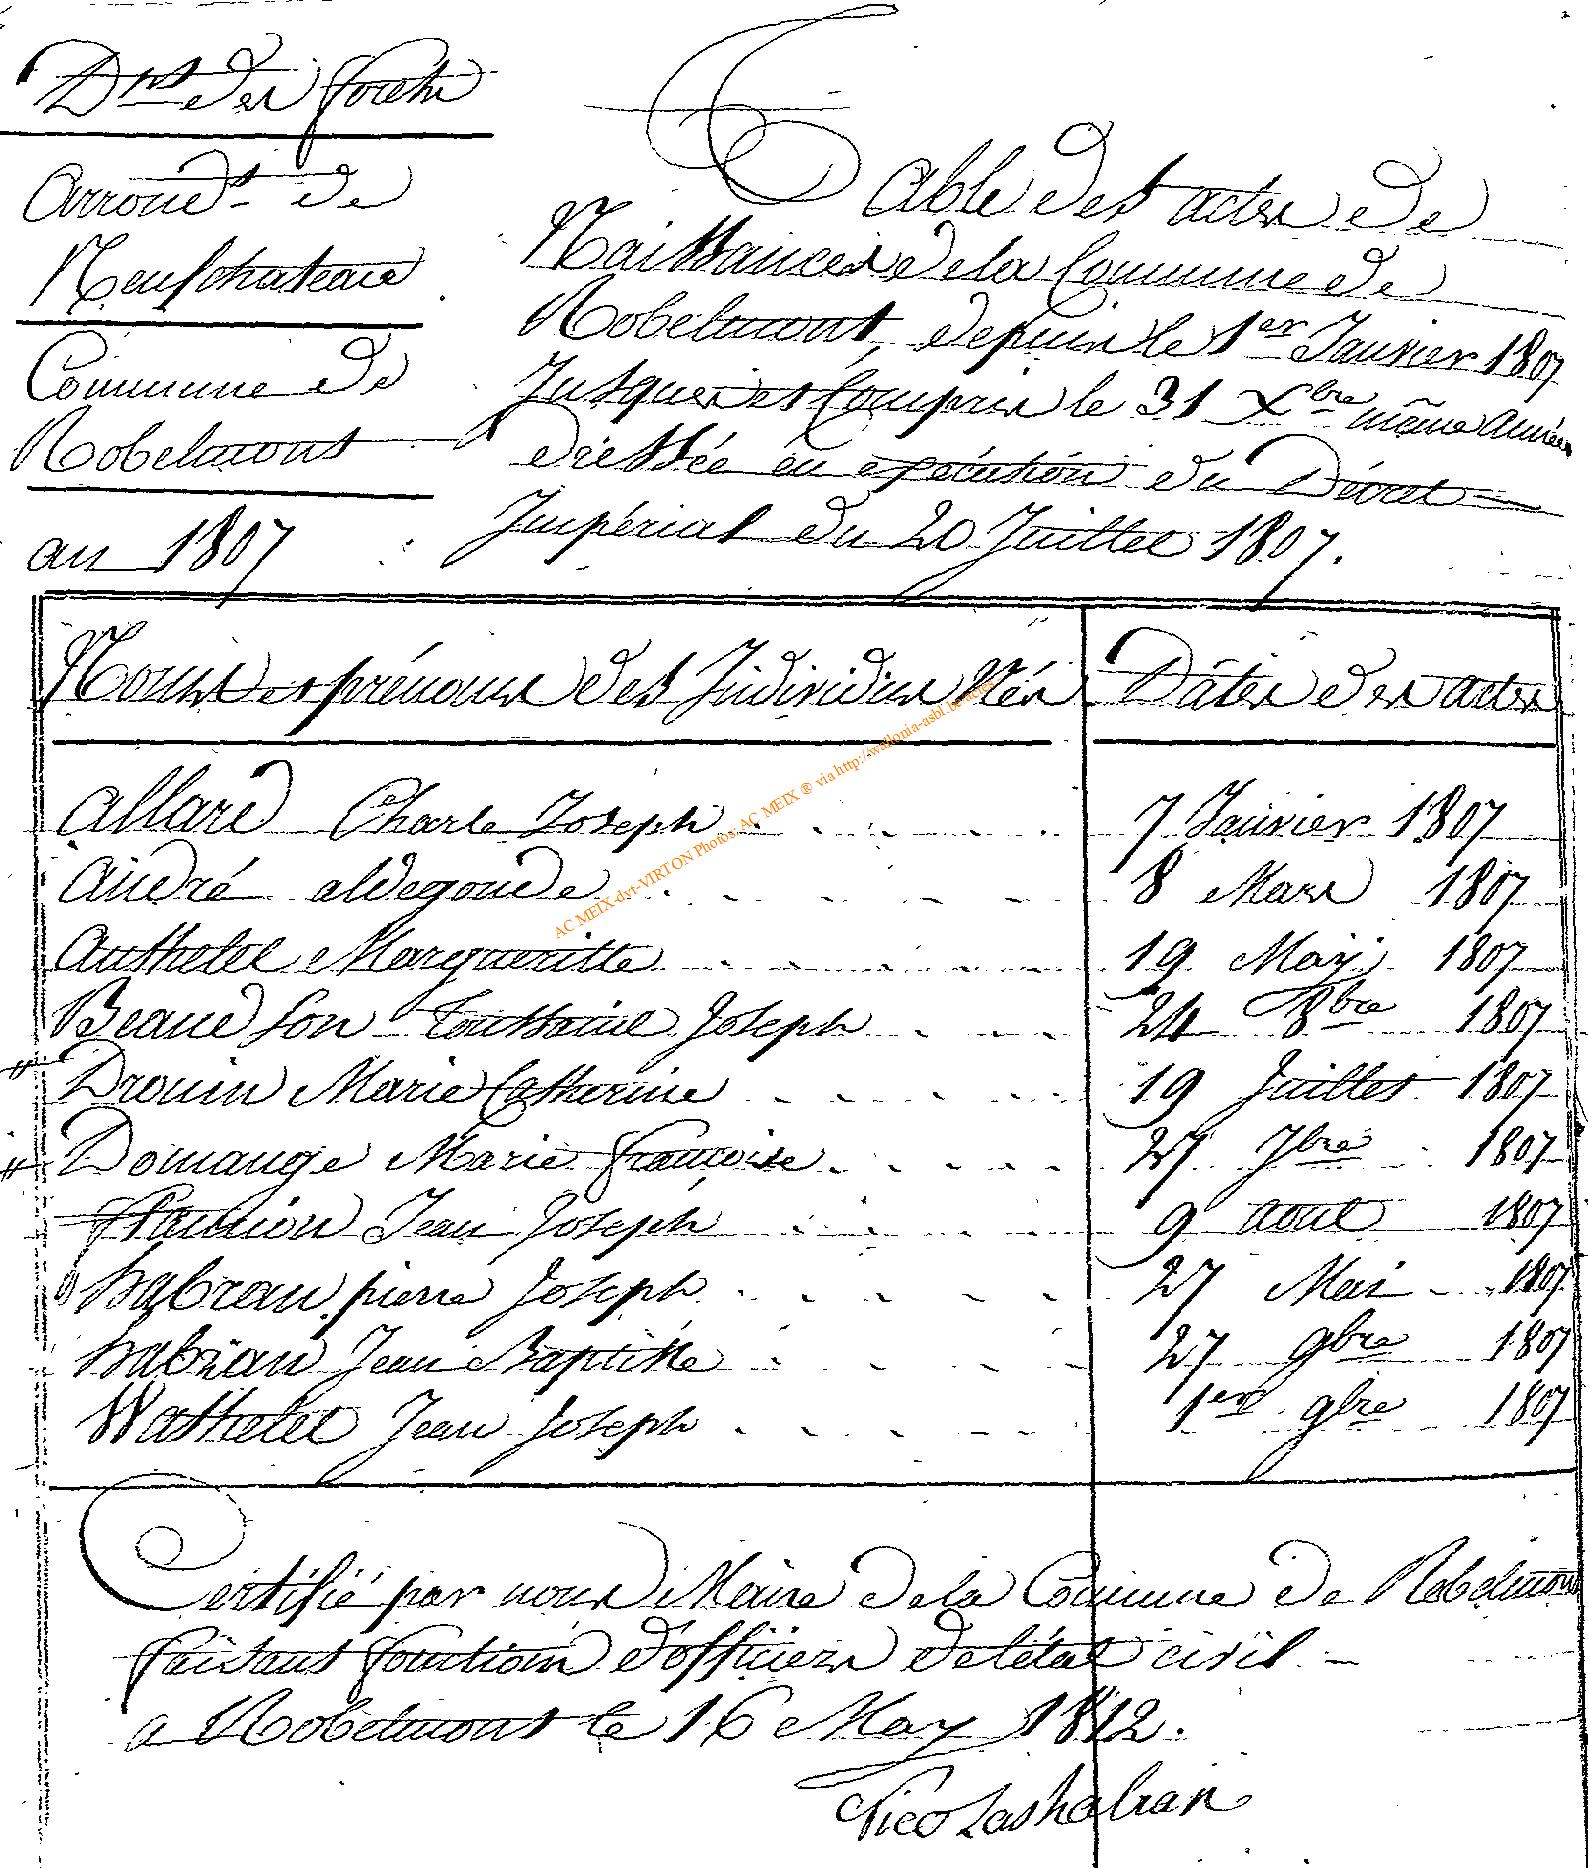 Dnt des forets
Arroudt de
Neufchateau
Commune de
Robelmont
an 1807
Table des actes de
Naissances de la Commune de
Robelmont, depuis le 1er Janvier 1807
Jusques et Compris le 31 Xbre même année
dressée en exécution du Décret
Impérial du 20 Juillet 1807.
Noms et prénoms des Individus Nés Dates des actes
Allard Charle Joseph 7 Janvier 1807
André aldegonde 8 Mars 1807
Authelet Margueritte 19 May 1807
Beaudson Toussaint Joseph 24 8bre 1807
Drouin Marie Catherine 19 Juillet 1807
Domange Marie françoise 27 7bre 1807
flamion Jean Joseph 9 aout 1807
habran pierre Joseph 27 Mai 1807
habran Jean Baptiste 27 9bre 1807
Wathelet Jean Joseph 1er 9bre 1807
Certifié par nous Maire de la Commune de Robelmont
faisant fonction d'officier de l'état civil
a Robelmont le 16 May 1812.
Nicolas habran
AC MEIX-dvt-VIRTON Photos AC MEIX ® via http://wallonia-asbl.be